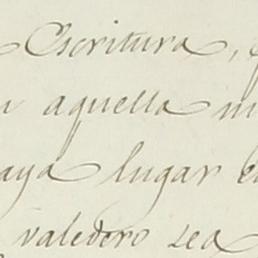 Escritura,
aquella
aya lugar
valedero sea